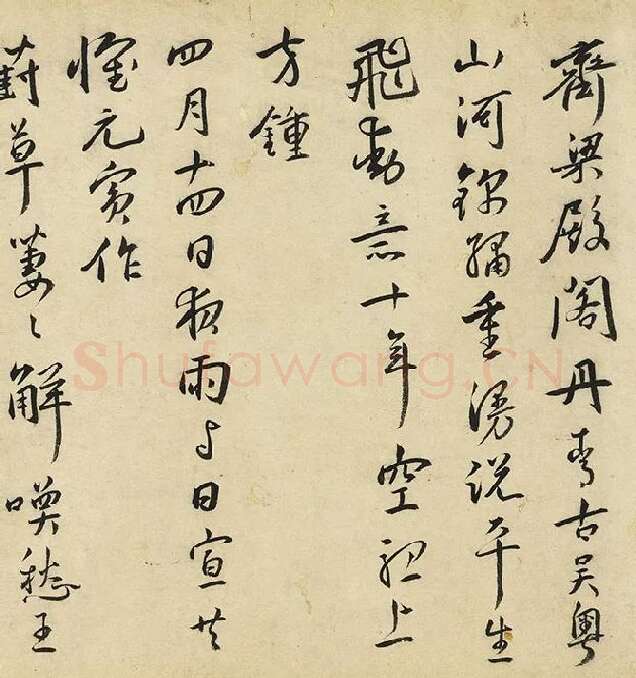 齊梁殿閣丹青古吳粵
山河錦繡重漫說平生
飛動意十年空聽上
方鍾
四月十四日夜雨与日宣共
懷元賓作
草萋〻解喚愁王
Shufawang.CN